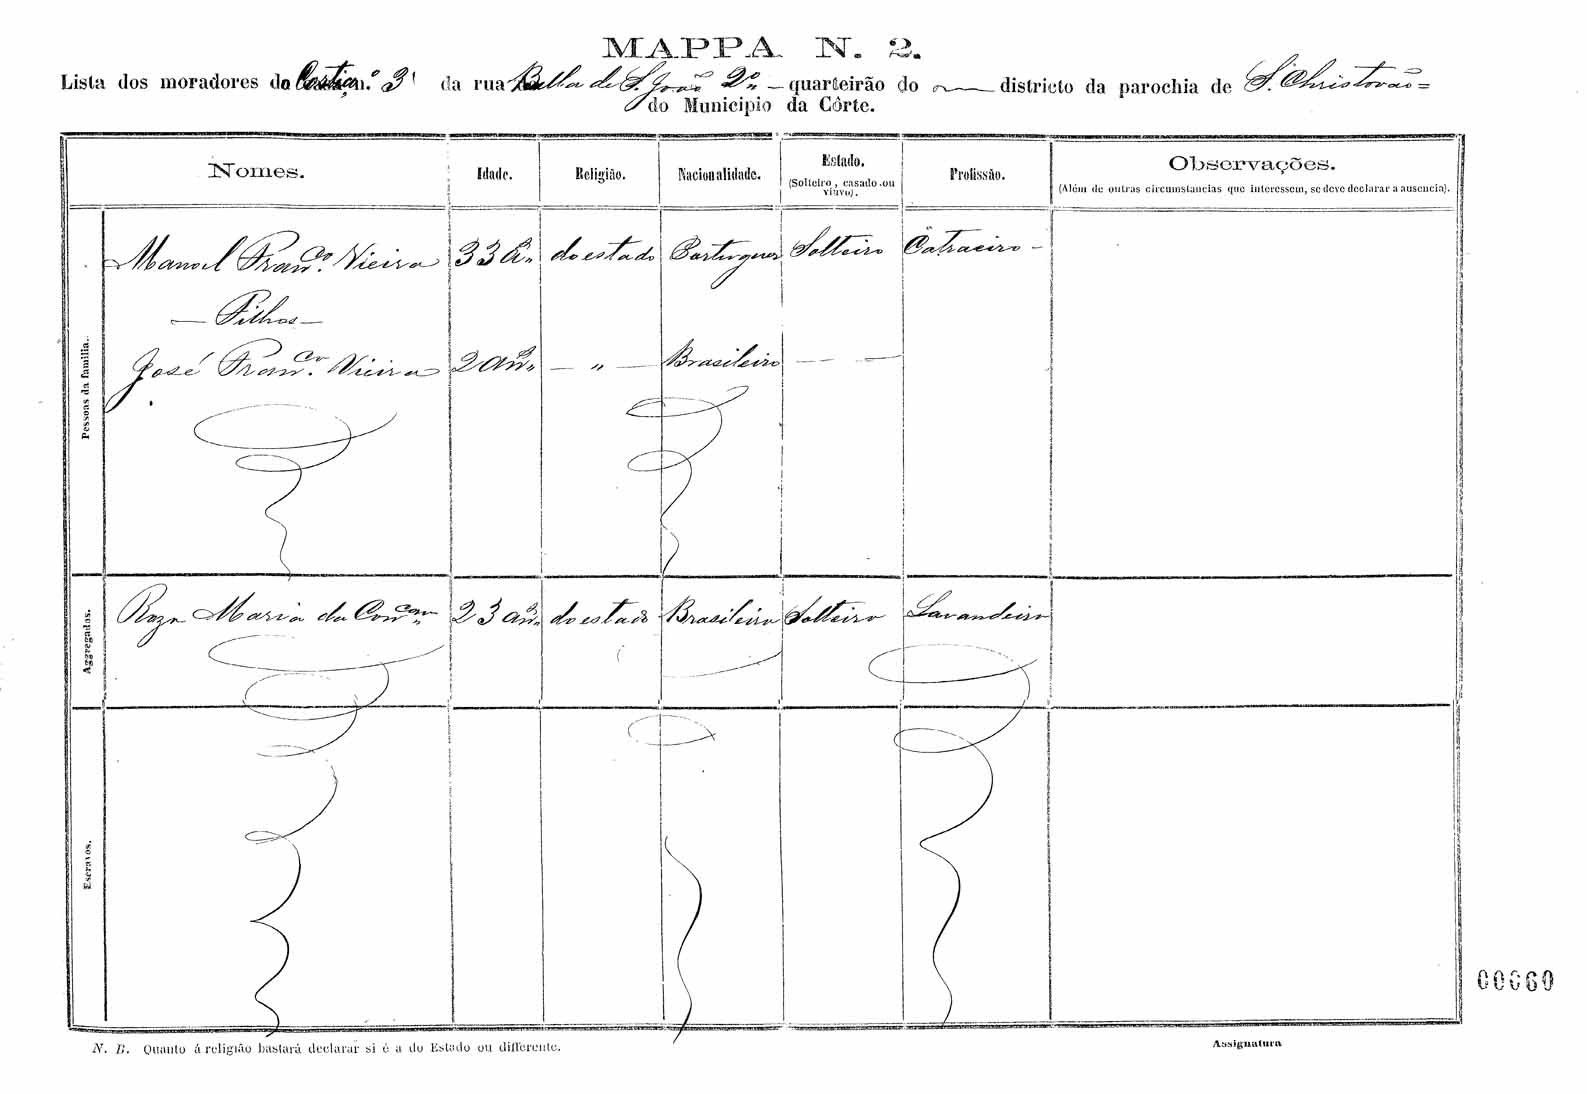 MAPPA N. 2.
Lista dos moradores do Cortiço n.º 3 da rua Bella de S. João 2º quarteirão do — districto da parochia de S. Christovão =
do Municipio da Côrte.
Nomes. Idade. Religião. Nacionalidade. Estado. Profissão. Observações.
(Solteiro, casado ou viuvo). (Além de outras circumstancias que interessem, se deve declarar a ausencia).
Pessoas da familia.
Manoel Franco. Vieira 33 A. do estado Portuguez Solteiro Catraeiro -
— Filhos —
José Franco. Vieira 2 ans. — " — Brasileiro — —
Aggregados.
Roza Maria da Concam 23 ans. do estado Brasileira Solteira Lavandeira
Escravos.
00060
N. B. Quanto á religião bastará declarar si é a do Estado ou differente.
Assignatura